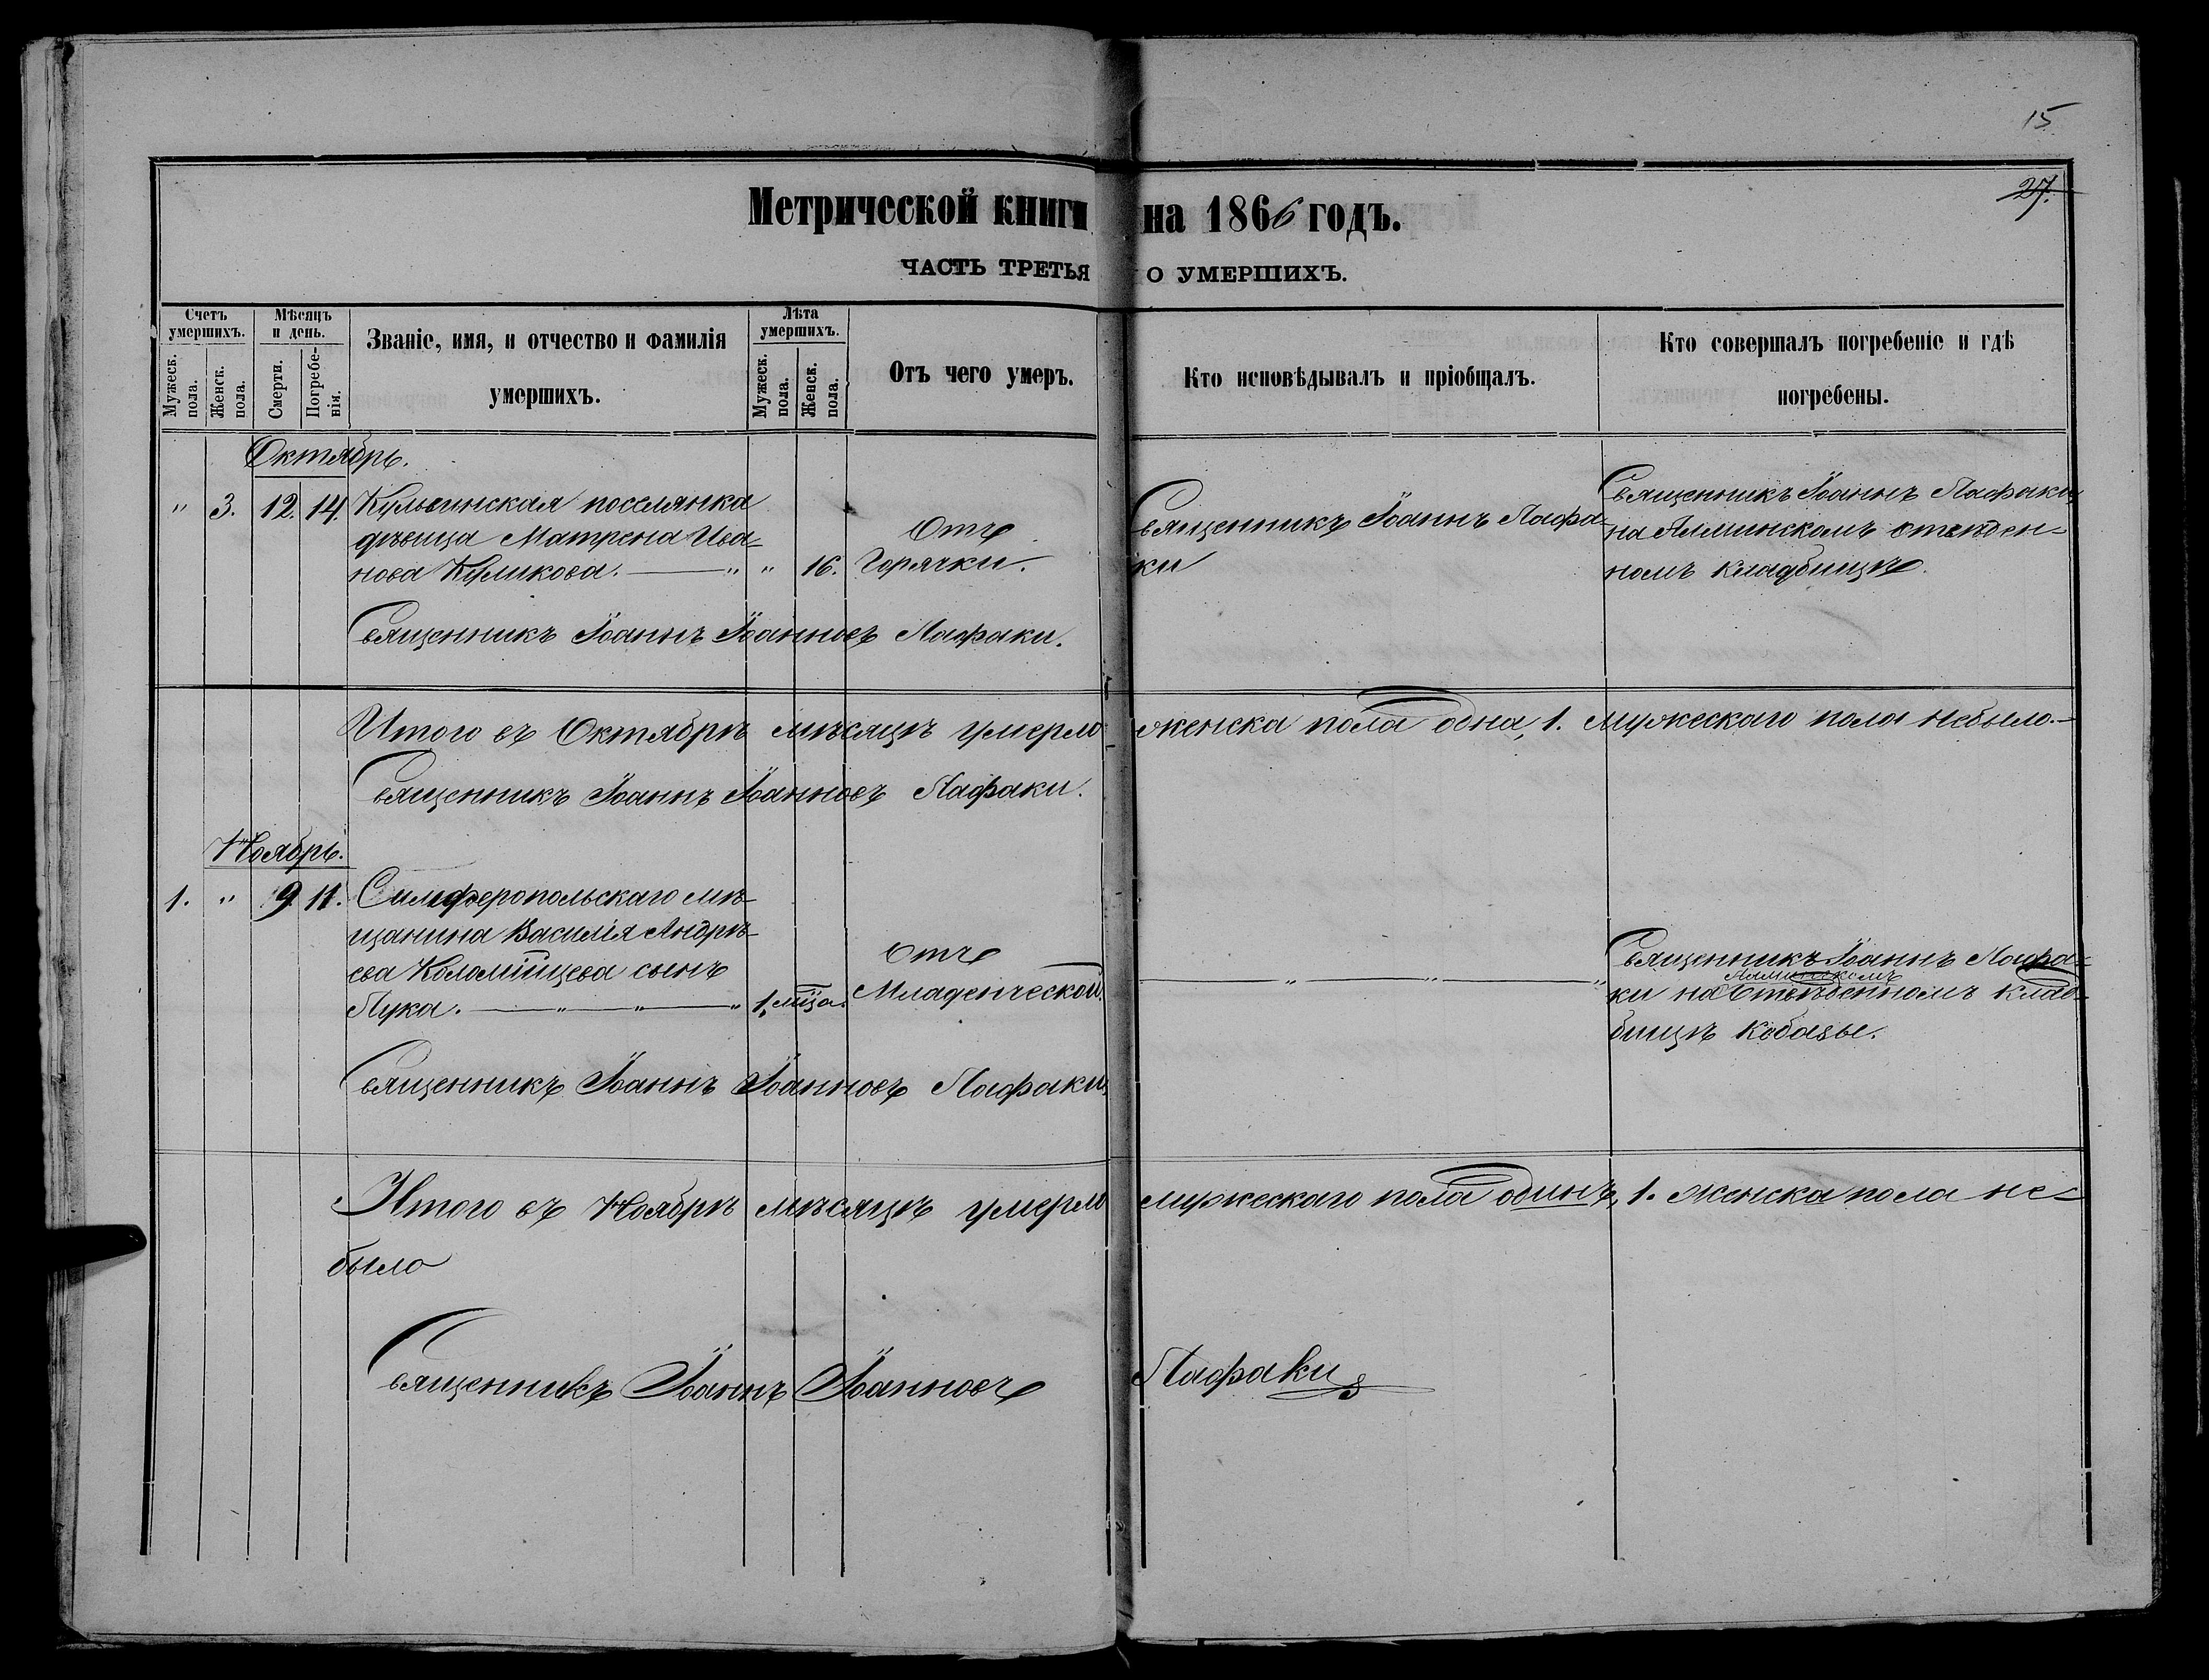 15
27.
Метрической книги на 1866 годъ.
ЧАСТЬ ТРЕТЬЯ О УМЕРШИХЪ.
Счетъ умершихъ.
Мужеск. пола.
Женск. пола.
Мѣсяцъ и день.
Смерти.
Погребе-нія.
Званіе, имя, и отчество и фамилія
умершихъ.
Лѣта умершихъ.
Мужеск. пола.
Женск. пола.
Отъ чего умеръ.
Кто исповѣдывалъ и пріобщалъ.
Кто совершалъ погребеніе и гдѣ
погребены.
Октябрь.
" 3. 12. 14. Кульчинская поселянка
дѣвица Матрена Ива-
нова Куликова. — " " 16.
Отъ
Горячки.
Священникъ Іоаннъ Лафа-
ки
Священникъ Іоаннъ Лафаки,
на Алминскомъ
номъ кладбищѣ.
Священникъ Іоаннъ Іоанновъ Лафаки.
Итого въ Октябрѣ мѣсяцѣ умерло женска пола одна, 1. мужескаго пола небыло.—
Священникъ Іоаннъ Іоанновъ Лафаки.
Ноябрь.
1. " 9. 11. Симферопольскаго мѣ-
щанина Василія Андрѣ-
ева Коломійцева сынъ
Лука. — " — " — " 1. мца.
Отъ
Младенческой.
— " — " — "
Священникъ Іоаннъ Лафа-
Алминскомъ
ки на клад-
бищѣ
Священникъ Іоаннъ Іоанновъ Лафаки
Итого въ Ноябрѣ мѣсяцѣ умерло мужескаго пола одинъ, 1. женска пола не-
было
Священникъ Іоаннъ Іоанновъ Лафаки